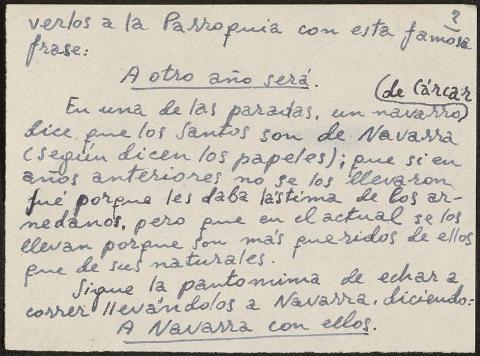 ?
verlos a la Parroquia con esta famosa
frase:
A otro año será.
(de Cárcar)
En una de las paradas, un navarro
dice que los Santos son de Navarra
(según dicen los papeles); que si en
años anteriores no se los llevaron
fué porque les daba lástima de los ar-
nedanos, pero que en el actual se los
llevan porque son más queridos de ellos
que de sus naturales.
Sigue la pantomima de echar a
correr llevándolos a Navarra, diciendo:
A Navarra con ellos.